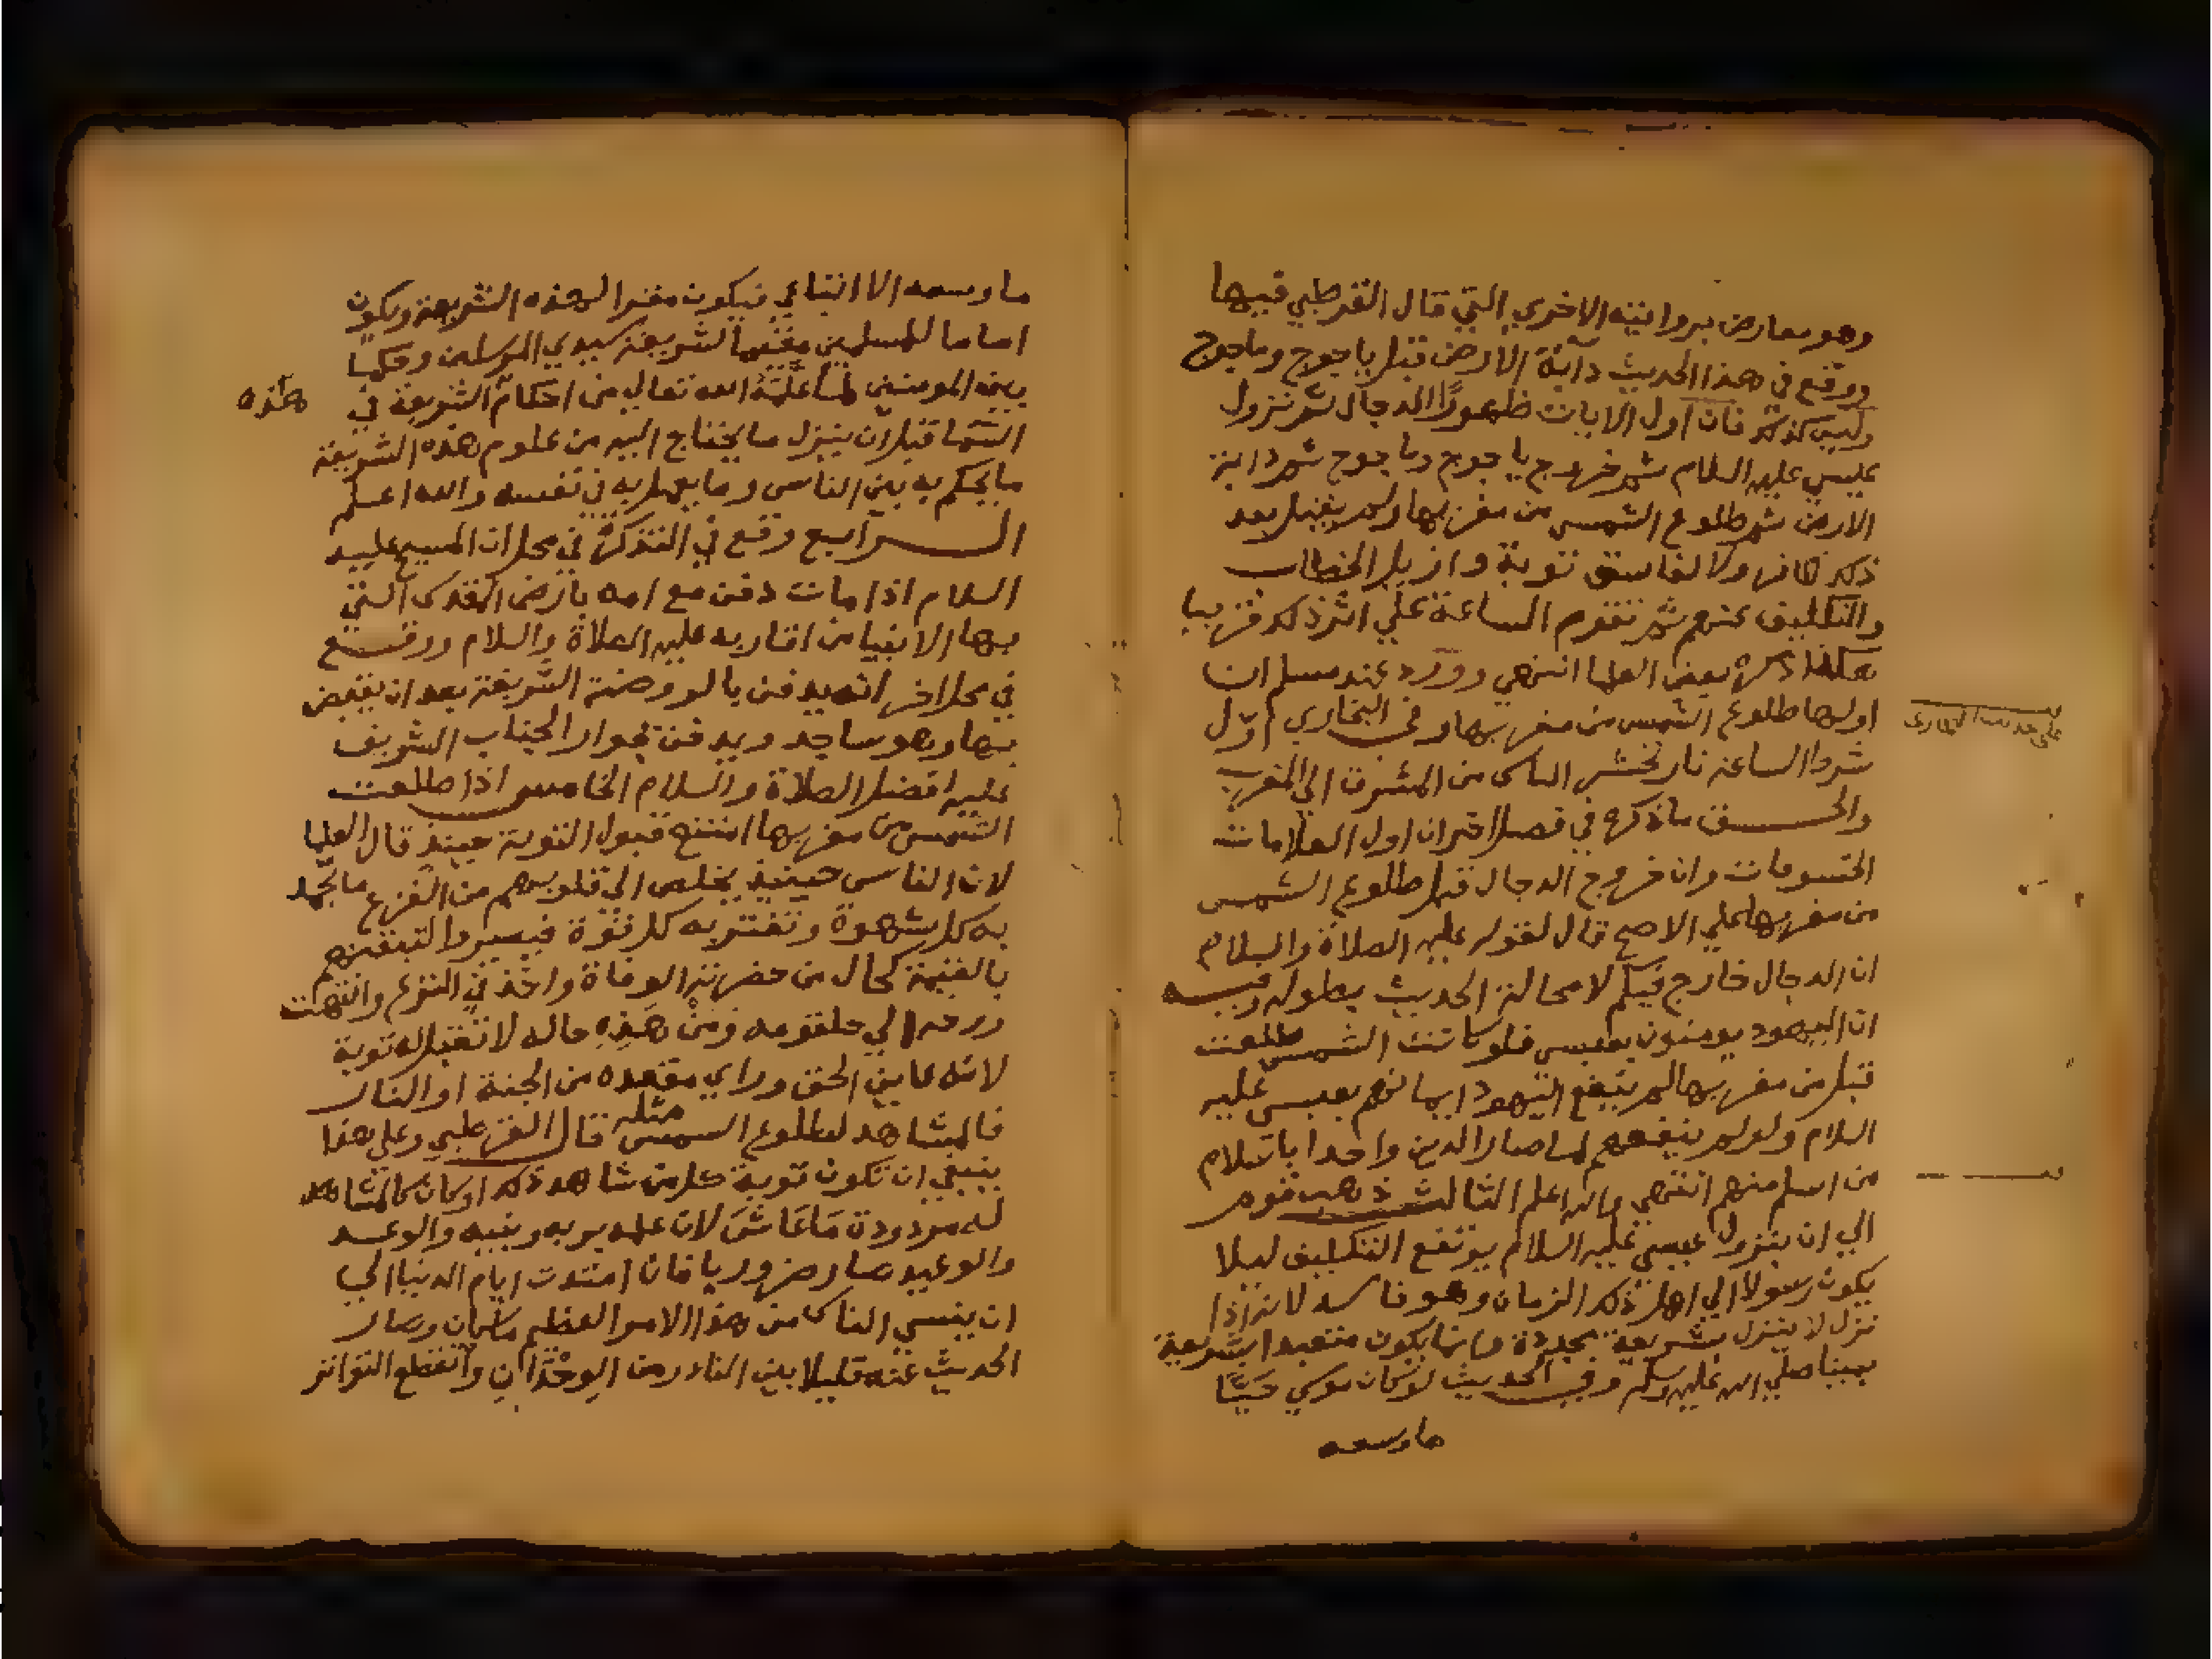 وهو معارض بروايته الاخري التي قال القرطبي فيها
ووقع في هذا الحديث دابة الارض قبل ياجوج وماجوج
وليس كذلك فان اول الايات ظهورا الدجال ثم نزول
عيسي عليه السلام ثم خروج ياجوج وماجوج ثم دابة
الارض ثم طلوع الشمس من مغربها ولم يقبل بعد
ذلك لكافر ولا لفاسق توبة وازيل الخطاب
والتكليف عنهم ثم تقوم الساعة علي اثر ذلك قريبا
هكذا ذكره بعض العلما انتهي وورد عند مسلم ان
اولها طلوع الشمس من مغربها وفي البخاري اول
شروط الساعة نار تحشر الناس من المشرق الي المغرب
والحسن ما ذكره في فصل اخر ان اول العلامات
الخسوفات وان خروج الدجال قبل طلوع الشمس
من مغربها علي الاصح قال لقوله عليه الصلاة والسلام
ان الدجال خارج فيكم لا محالة الحديث بطوله وفيه
ان اليهود يومنون بعيسي فلو كانت الشمس طلعت
قبل من مغربها لم ينفع اليهود ايمانهم بعيسي عليه
السلام ولو لم ينفعهم لما صار الدين واحدا باسلام
من اسلم منهم انتهي والله اعلم الثالث ذهب قوم
الي ان بنزول عيسي عليه السلام يرتفع التكليف ليلا
يكون رسولا الي اهل ذلك الزمان وهو فاسد لانه اذا
نزل لا ينزل بشريعة مجددة وانما يكون متعبدا بشريعة
نبينا صلي الله عليه وسلم وفي الحديث لو كان موسي حيا
ما وسعه
علي حديث البخاري
ما وسعه الا اتباعي فيكون مقررا لهذه الشريعة ويكون
اماما للمسلمين مقيما لشريعة سيدي المرسلين وحكما
بين المومنين لما علمه الله تعالي من احكام الشريعة في
هذه
السما قبل ان ينزل ما يحتاج اليه من علوم هذه الشريعة
ما يحكم به بين الناس وما يعمل به في نفسه والله اعلم
الرابع وقع في التذكرة في محل ان المسيح عليه
السلام اذا مات دفن مع امه بارض القدس التي
بها الانبيا من اقاربه عليه الصلاة والسلام ووقع
في محل اخر انه يدفن بالروضة الشريفة بعد ان يقبض
بها وهو ساجد ويدفن بجوار الجناب الشريف
عليه افضل الصلاة والسلام الخامس اذا طلعت
الشمس من مغربها امتنع قبول التوبة حينيذ قال العلما
لان الناس حينيذ يخلص الي قلوبهم من الفزع ما يخمد
به كل شهوة وتفتر به كل قوة فيصيروا لتيقنهم
بالقيمة كحال من حضرته الوفاة واخذ في النزع وانتهت
روحه الي حلقومه ومن هذه حاله لا تقبل له توبة
لانه عاين الحق وراي مقعده من الجنة او النار
فالمشاهد لطلوع الشمس مثله قال القرطبي وعلي هذا
ينبغي ان تكون توبة كل من شاهد ذلك او كان كالمشاهد
له مردودة ما عاش لان علمه بربه ونبيه والوعد
والوعيد صار ضروريا فان امتدت ايام الدنيا الي
ان ينسي الناس من هذا الامر العظيم ما كان وصار
الحديث عنه قليلا بين النادر من الوحدان وانقطع التواتر